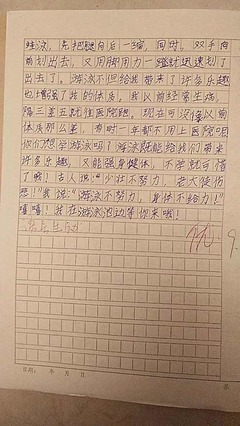 蛙泳，先把腿向后一蹬，同时，双手向
前划出去，又用脚用力一蹬就迅速划了
出去了。游泳不但给我带来了许多乐趣
也增强了我的体质。我以前经常生病，
隔三差五就往医院跑。现在可没像以前
体质那么差，有时一年都不用上医院呢
你们想学游泳吗？游泳既能给我们带来
许多乐趣，又能强身健体，不学就可惜
了哦！古人说：“少壮不努力，老大徒伤
悲！”我说：“游泳不努力，身体不给力！”
嘻嘻！我在游泳池边等你来哦！
生动
优
9.
日期： 年 月 日